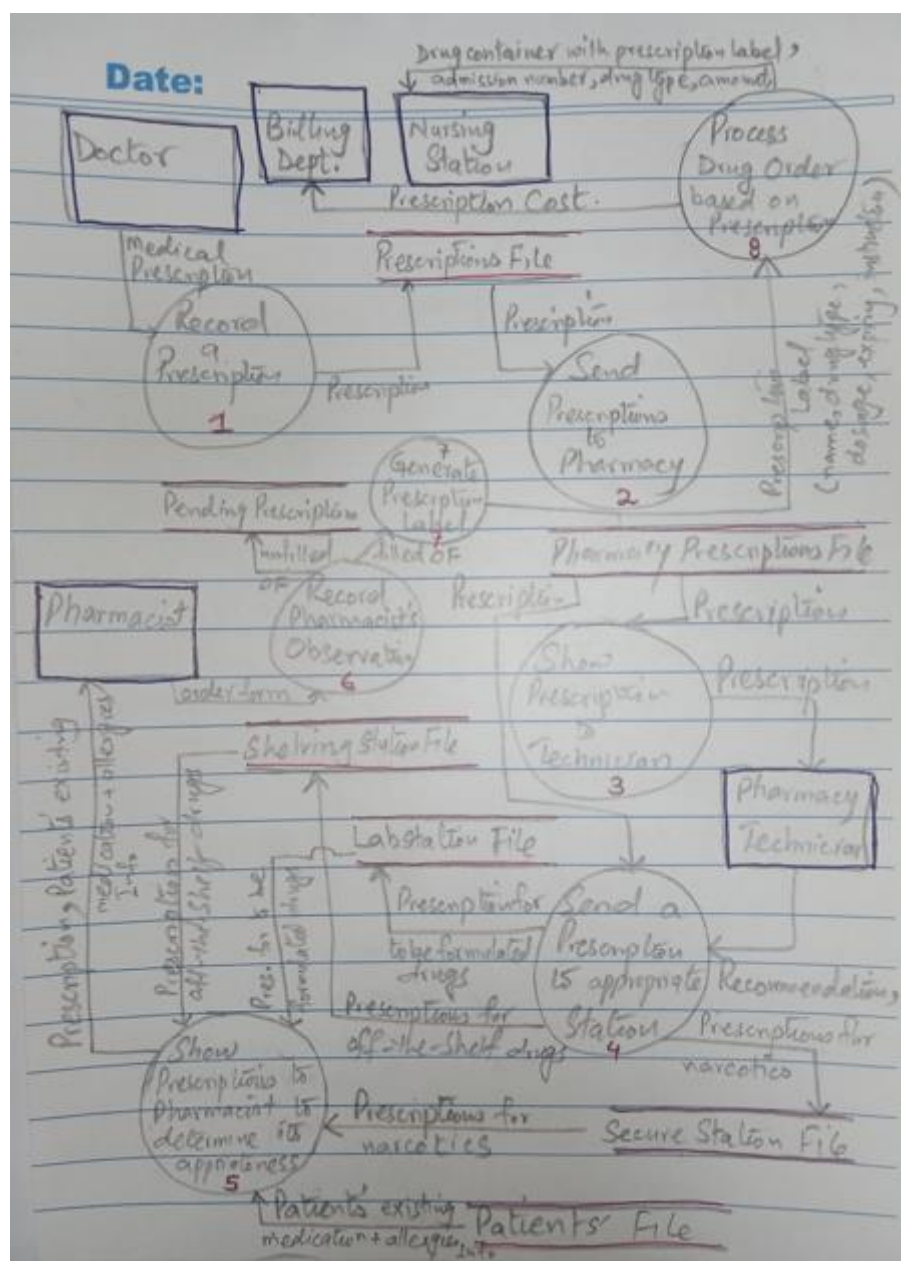 Drug container with prescription label,
admission number, drug type, amount,
Date:
Doctor
Billing
Dept.
Nursing
Station
Process
Drug Order
based on
Prescription
8
Prescription Cost.
Medical
Prescription
Prescriptions File
Record
a
Prescription
1
Prescription
Prescription
Send
Prescriptions
to
Pharmacy
2
Prescription
Label
(name, drug type,
dosage, expiry,
7
Generate
Prescription
Label
Pending Prescription
unfilled
OF
filled OF
Pharmacy Prescriptions File
Prescription
Prescription
Pharmacist
Record
Pharmacist's
Observation
6
order form
Show
Prescription
to
Technician
3
Prescription
Pharmacy
Technician
Shelving Station File
Labstation File
Prescription, Patients' existing
medication + allergies
Info
Prescription for
off-the-shelf drugs
Pres. for to be
formulated drugs
Prescription for
to be formulated
drugs
Send a
Prescription
to appropriate
Station
4
Recommendation,
Prescriptions for
off-the-shelf drugs
Prescriptions for
narcotics
Show
Prescriptions to
Pharmacist to
determine its
appropriateness
5
Prescriptions for
narcotics
Secure Station File
Patients' existing
medication + allergies Info
Patients' File